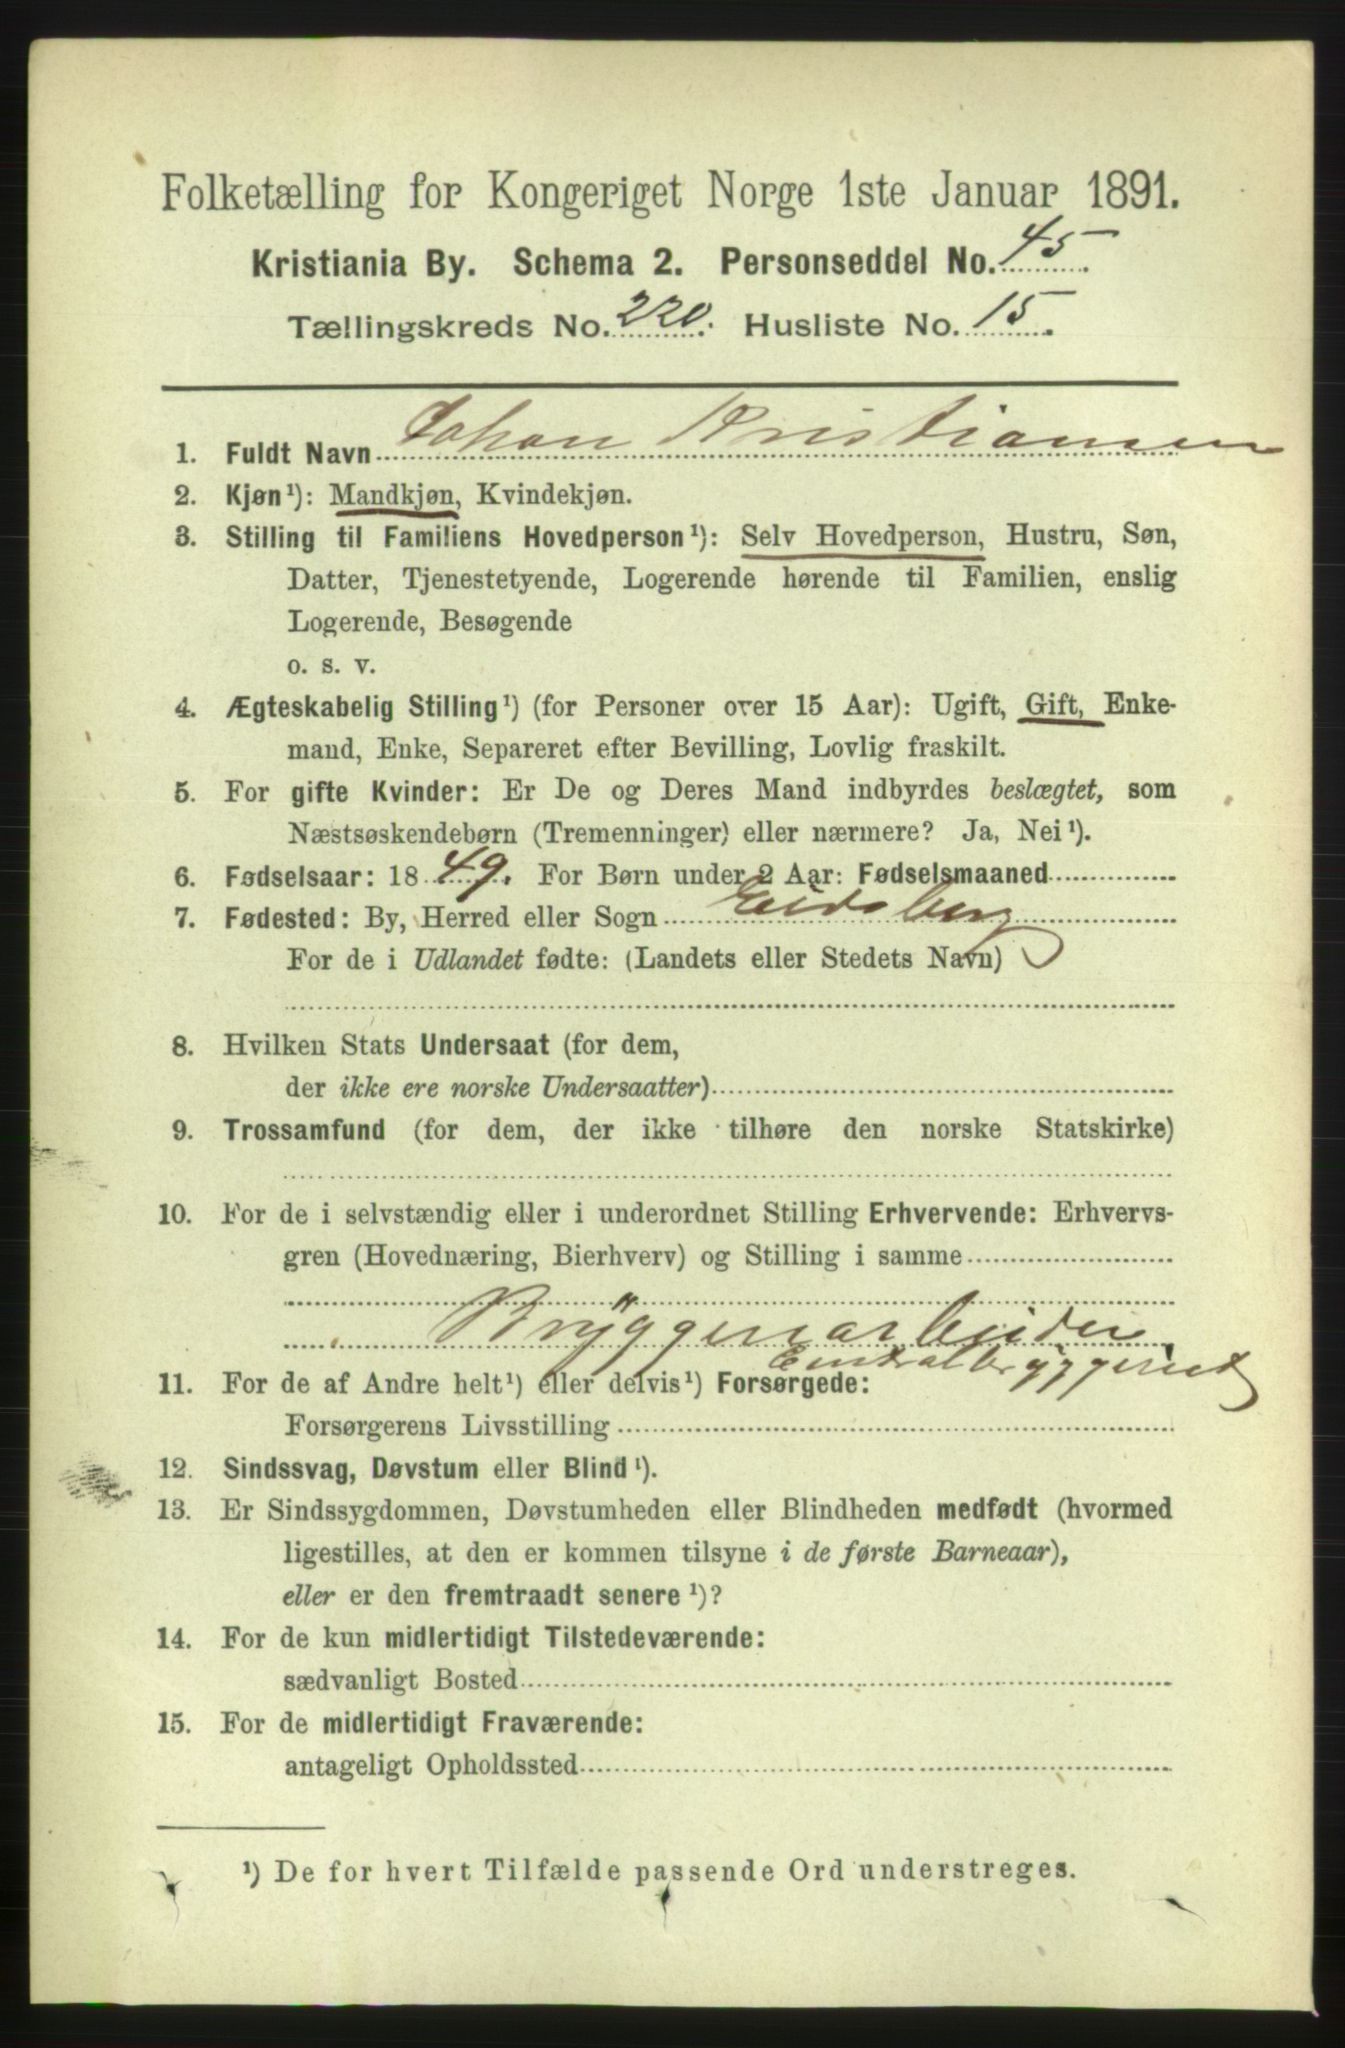 Folketælling for Kongeriget Norge 1ste Januar 1891.
Kristiania By. Schema 2. Personseddel No. 45.
Tællingskreds No. 220. Husliste No. 15.
1. Fuldt Navn Johan Kristiansen
2. Kjøn¹): Mandkjøn, Kvindekjøn.
3. Stilling til Familiens Hovedperson¹): Selv Hovedperson, Hustru, Søn,
Datter, Tjenestetyende, Logerende hørende til Familien, enslig
Logerende, Besøgende
o. s. v.
4. Ægteskabelig Stilling¹) (for Personer over 15 Aar): Ugift, Gift, Enke-
mand, Enke, Separeret efter Bevilling, Lovlig fraskilt.
5. For gifte Kvinder: Er De og Deres Mand indbyrdes beslægtet, som
Næstsøskendebørn (Tremenninger) eller nærmere? Ja, Nei¹).
6. Fødselsaar: 1849. For Børn under 2 Aar: Fødselsmaaned
7. Fødested: By, Herred eller Sogn Eidsberg
For de i Udlandet fødte: (Landets eller Stedets Navn)
8. Hvilken Stats Undersaat (for dem,
der ikke ere norske Undersaatter)
9. Trossamfund (for dem, der ikke tilhøre den norske Statskirke)
10. For de i selvstændig eller i underordnet Stilling Erhvervende: Erhvervs-
gren (Hovednæring, Bierhverv) og Stilling i samme
Bryggeriarbeider
Centralbryggeriet
11. For de af Andre helt¹) eller delvis¹) Forsørgede:
Forsørgerens Livsstilling
12. Sindssvag, Døvstum eller Blind¹).
13. Er Sindssygdommen, Døvstumheden eller Blindheden medfødt (hvormed
ligestilles, at den er kommen tilsyne i de første Barneaar),
eller er den fremtraadt senere¹)?
14. For de kun midlertidigt Tilstedeværende:
sædvanligt Bosted
15. For de midlertidigt Fraværende:
antageligt Opholdssted
¹) De for hvert Tilfælde passende Ord understreges.